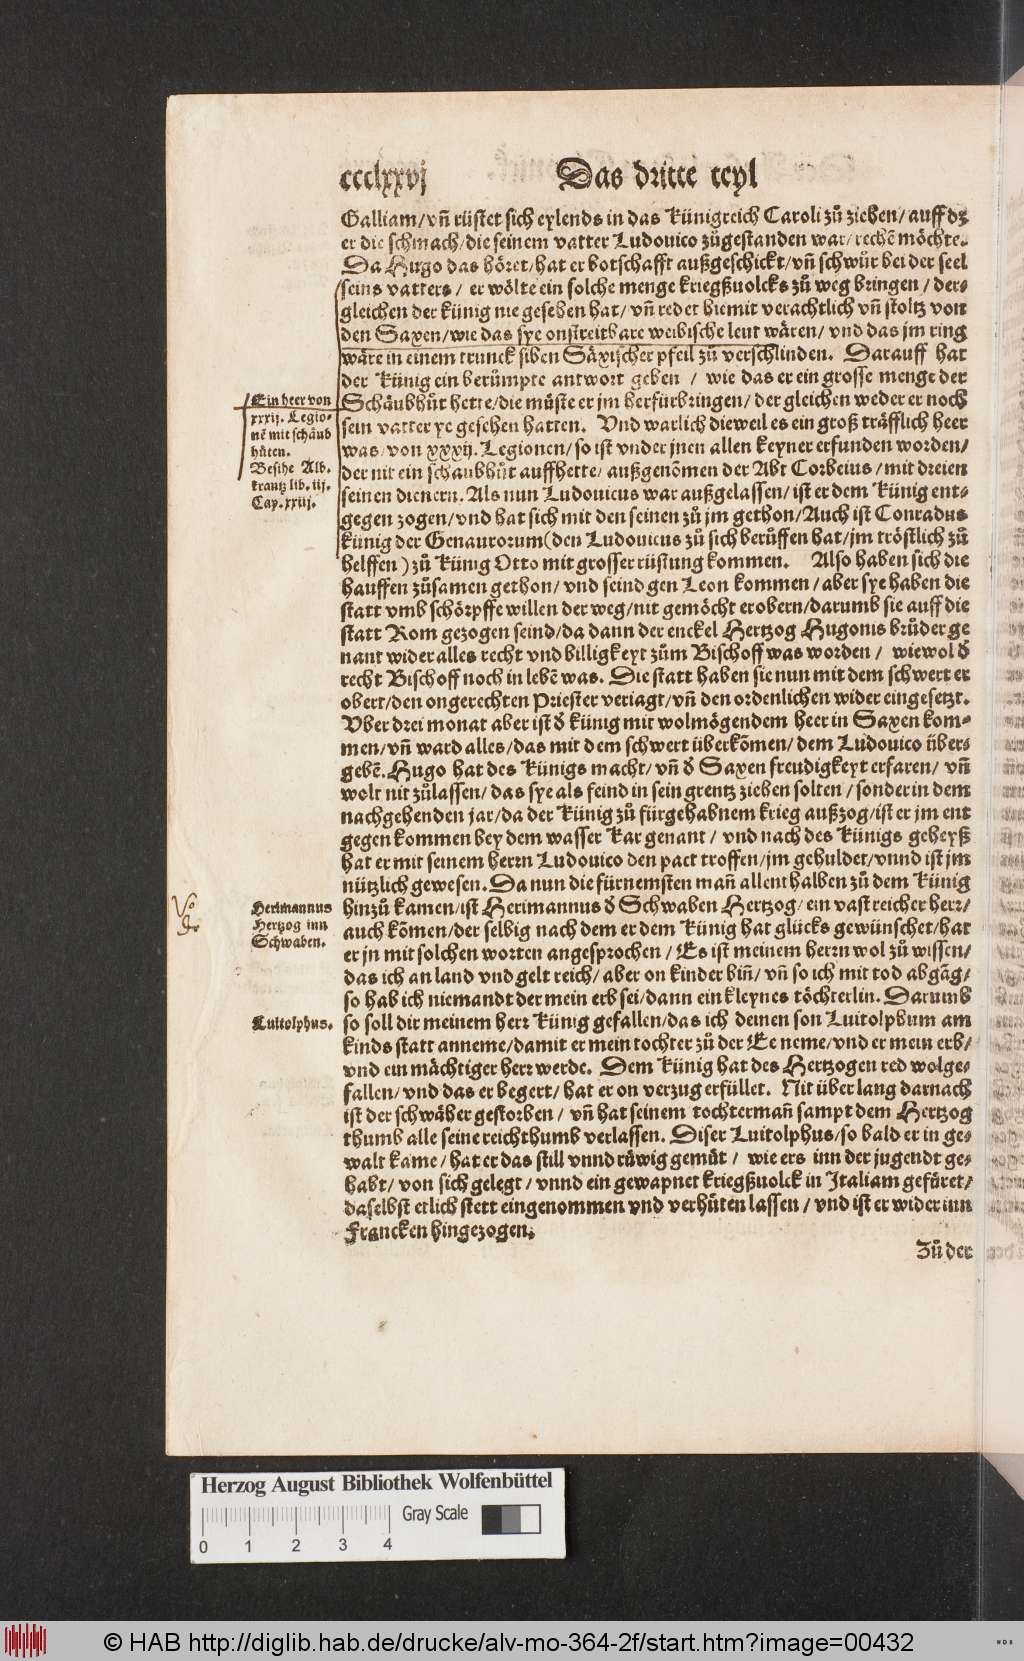 ccclxxvj
Das dritte teyl
Galliam/vñ rüstet sich eylends in das Künigreich Caroli zů ziehen/auff dz
er die schmach/die seinem vatter Ludouico zůgestanden war/rechẽ möchte.
Da Hugo das höret/hat er botschafft außgeschickt/vñ schwůr bei der seel
seins vatters/ er wölte ein solche menge kriegßuolcks zů weg bringen/ der-
gleichen der künig nie gesehen hat/ vñ redet hiemit verachtlich vñ stoltz von
den Saxen/wie das sye onstreitbare weibische leut wären/ vnd das jm ring
wäre in einem trunck siben Säxischer pfeil zů verschlinden. Darauff hat
der Künig ein berümpte antwort geben / wie das er ein grosse menge der
Schäubhůt hette/die müste er jm herfürbringen/ der gleichen weder er noch
sein vatter ye gesehen hatten. Vnd warlich dieweil es ein groß träfflich heer
was/von xxxij. Legionen/so ist vnder jnen allen keyner erfunden worden/
der nit ein schaubhůt auffhette/ außgenõmen der Abt Corbeius/mit dreien
seinen dienern. Als nun Ludouicus war außgelassen/ist er dem Künig ent-
gegen zogen/vnd hat sich mit den seinen zů jm gethon/Auch ist Conradus
künig der Genaurorum(den Ludouicus zů sich berůffen hat/jm tröstlich zů
helffen) zů Künig Otto mit grosser rüstung kommen. Also haben sich die
hauffen zůsamen gethon/ vnd seind gen Leon kommen/aber sye haben die
statt vmb schörpffe willen der weg/nit gemöcht erobern/darumb sie auff die
statt Rom gezogen seind/da dann der enckel Hertzog Hugonis brůder ge
nant wider alles recht vnd billigkeyt zům Bischoff was worden/ wiewol ð
recht Bischoff noch in lebẽ was. Die statt haben sie nun mit dem schwert er
obert/den ongerechten Priester veriagt/vñ den ordenlichen wider eingesetzt.
Vber drei monat aber ist ð künig mit wolmögendem heer in Saxen kom-
men/vñ ward alles/das mit dem schwert überkõmen/dem Ludouico über-
gebẽ. Hugo hat des Künigs macht/ vñ ð Saxen freudigkeyt erfaren/ vñ
wolt nit zůlassen/das sye als feind in sein grentz ziehen solten/sonder in dem
nachgehenden jar/da der Künig zů fürgehabnem krieg außzog/ist er jm ent
gegen kommen bey dem wasser Kar genant/ vnd nach des Künigs geheyß
hat er mit seinem herrn Ludouico den pact troffen/jm gehuldet/vnnd ist jm
nützlich gewesen. Da nun die fürnemsten mañ allenthalben zů dem Künig
hinzů kamen/ist Herimannus ð Schwaben Hertzog/ein vast reicher herr/
auch kõmen/der selbig nach dem er dem Künig hat glücks gewünschet/hat
er jn mit solchen worten angesprochen/ Es ist meinem herrn wol zů wissen/
das ich an land vnd gelt reich/aber on kinder biñ/ vñ so ich mit tod abgãg/
so hab ich niemandt der mein erb sei/dann ein kleynes töchterlin. Darumb
so soll dir meinem herr Künig gefallen/das ich deinen son Luitolphum am
kinds statt anneme/damit er mein tochter zů der Ee neme/vnd er mein erb/
vnd ein mächtiger herr werde. Dem Künig hat des Hertzogen red wolge-
fallen/vnd das er begert/hat er on verzug erfüllet. Nit über lang darnach
ist der schwäher gestorben / vñ hat seinem tochtermañ sampt dem Hertzog
thumb alle seine reichthumb verlassen. Diser Luitolphus/so bald er in ge-
walt kame/hat er das still vnnd růwig gemůt/ wie ers inn der jugendt ge-
habt/ von sich gelegt/ vnnd ein gewapnet kriegßuolck in Italiam gefüret/
daselbst etlich stett eingenommen vnd verhüten lassen/ vnd ist er wider inn
Francken hingezogen.
Zů der
Ein heer von
xxxij. Legio-
nẽ mit schäub
hüten.
Besihe Alb.
krantz lib. iij.
Cap. xxiij.
Herimannus
Hertzog inn
Schwaben.
Luitolphus.
Herzog August Bibliothek Wolfenbüttel
Gray Scale
0 1 2 3 4
© HAB http://diglib.hab.de/drucke/alv-mo-364-2f/start.htm?image=00432